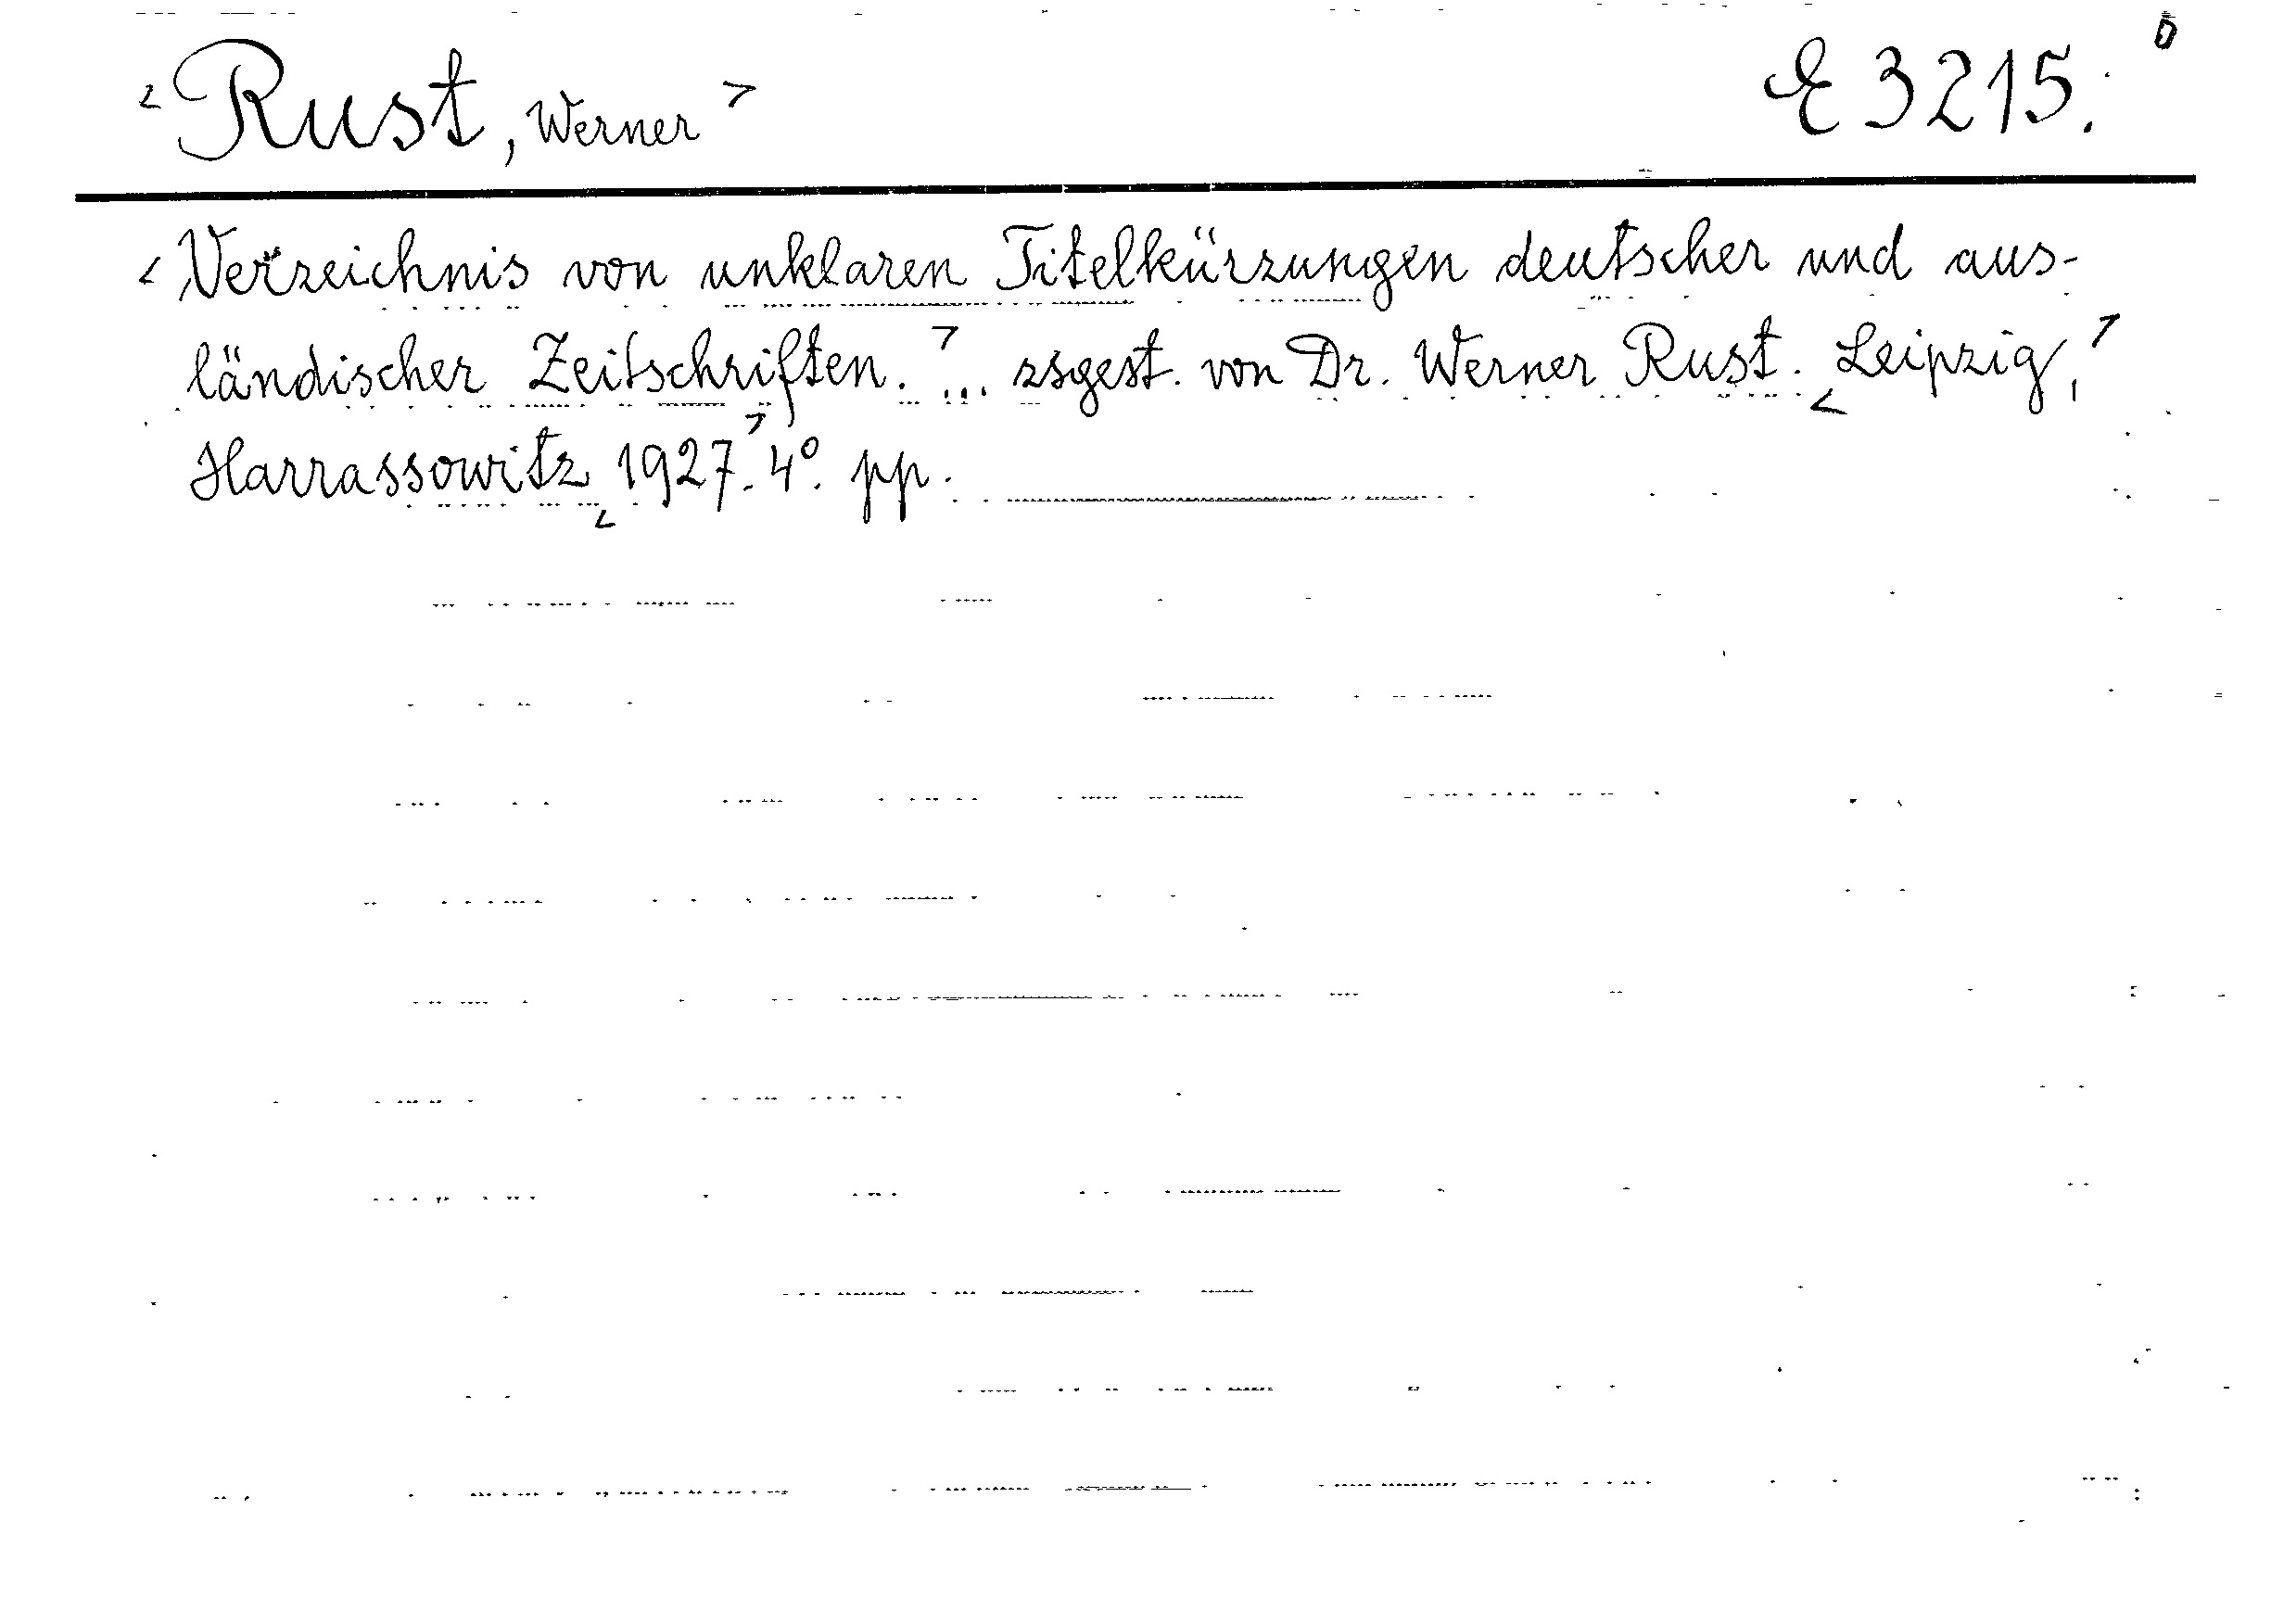 <Rust, Werner> E 3215.
<Verzeichnis von unklaren Titelkürzungen deutscher und aus-
ländischer Zeitschriften.> ... zsgest. von Dr. Werner Rust. <Leipzig,>
Harrassowitz <1927.> 4°. pp.